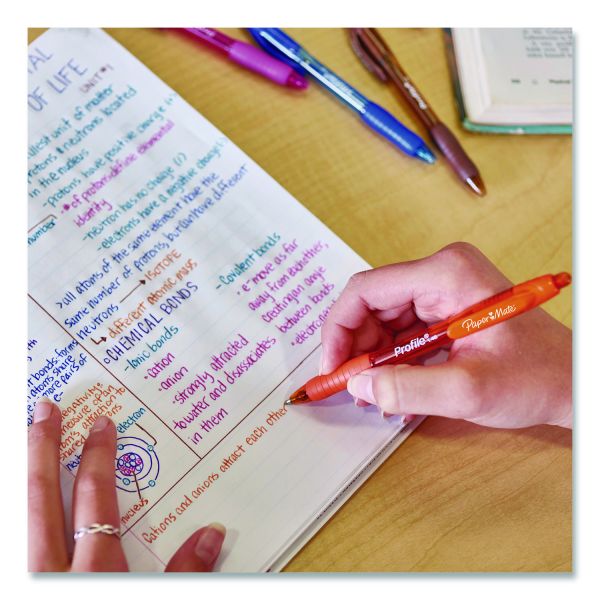 OF LIFE
UNIT #1
unit of matter
protons & neutrons located
in the nucleus
-protons have positive charge (+)
*# of protons define elemental
identity
-neutron has no charge ( )
-electrons have a negative charge (-)
number
>all atoms of the same element have the
same number of protons, but can have different
neutrons → ISOTOPE
↳ different atomic mass
○CHEMICAL BONDS
-Ionic bonds
·cation
·anion
·strongly attracted
to water and disassociates
in them
-Covalent bonds
·e⁻ move as far
away from each other,
creating an angle
between bonds
bonds: forms
atoms share
more pairs of
e-
negativity:
measure of an
atom's
attraction to
electron
nucleus
Cations and anions attract each other
Profile
Paper Mate